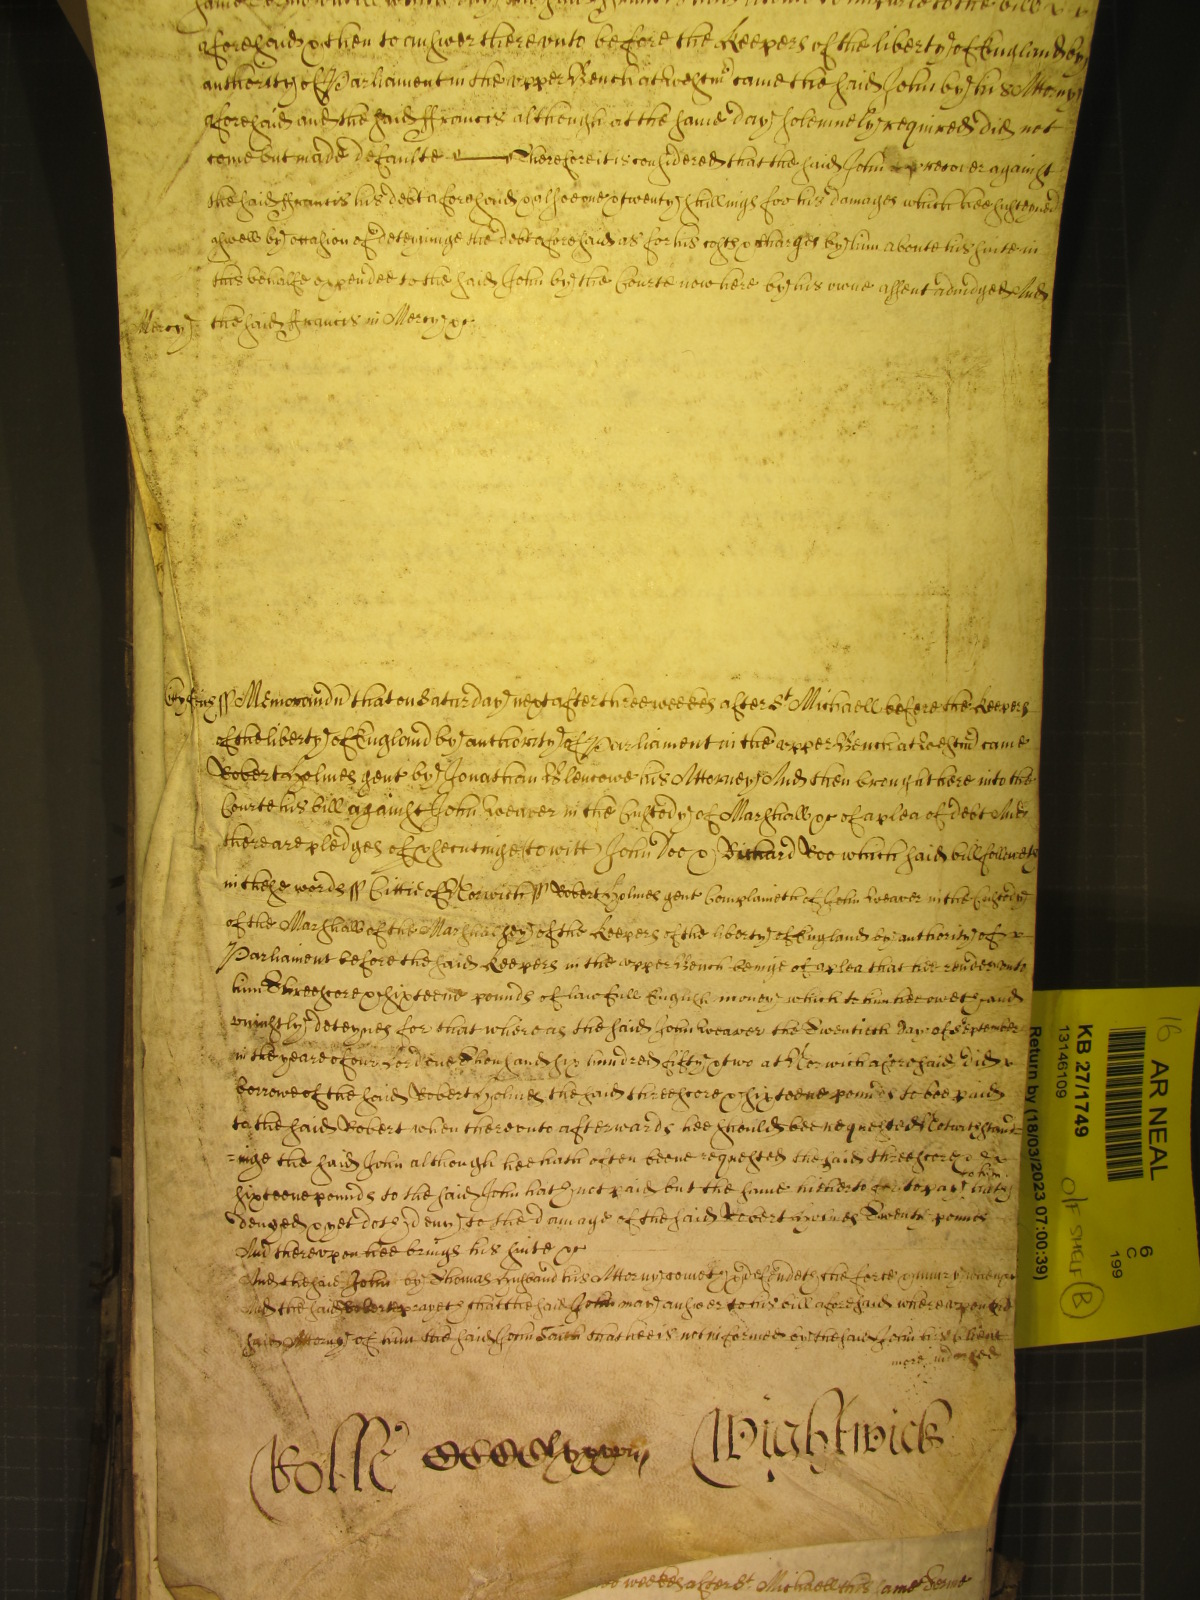 aforesaid & then to answer thereunto before the Keepers of the liberty of England by
authority of Parliament in the upper Bench at Westmr came the said John by his Attorny
aforesaid and the said ffrancis although at the same day solemnely required did not
come but made defaulte Therefore it is considered that the said John recover against
the said ffrancis his debt aforesaid & alsoe one & twenty shillings for his damages which hee susteyned
aswell by occasion of deteyninge the debt aforesaid as for his costs & charges by him aboute his suite in
this behalfe expended to the said John by the Courte now here by his owne assent adiudged And
Mercy the said ffrancis in Mercy &c
ss Memorand that on Saturday next after three weekes after St Michaell before the Keepers
of the liberty of England by authority of Parliament in the upper Bench at Westmr came
Robert Holmes gent by Jonathan Blencowe his Attorney And then brought here into the
Courte his bill against John Weaver in the Custody of Marshall &c of a plea of debt And
there are pledges of prosecutinge (to witt) John Doo & Richard Roo which said bill followeth
in these words ss Cittie of Norwich ss Robert Holmes gent Complaineth of John Weaver in the Custody
of the Marshall of the Marshalsey of the Keepers of the liberty of England by authority of
Parliament before the said Keepers in the upper Bench beinge of a plea that hee render unto
him Threescore & sixteene pounds of lawfull English money which to him hee oweth and
uniustly deteynes for that whereas the said John Weaver the Twentieth Day of September
in the yeare of our Lord one Thousand six hundred fifty & two at Norwich aforesaid did
borrowe of the said Robert Holmes the said threescore & sixteene pounds to bee paid
to the said Robert when thereunto afterwards hee should bee requested Notwithstand
=inge the said John although hee hath often beene requested the said threescore &
sixteene pounds to the said John hath not paid but the same hitherto to pay to him hath
denyed & yet doth deny to the damage of the said Robert Holmes Twenty pounds
And thereupon hee brings his suite &c
And the said John by Thomas his Attorny cometh & defendeth the force & iniury when &c
And the said Robert prayeth that the said John may answer to his bill aforesaid whereupon the
said Attorny of him the said John saith that hee is not informed by the said John his Client
more indorsed
Rolle Wightwick
weekes after St Michaell this same Terme
16 AR NEAL
6
C
199
KB 27/1749
13146109
O/F SHELF B
Return by (18/03/2023 07:00:39)